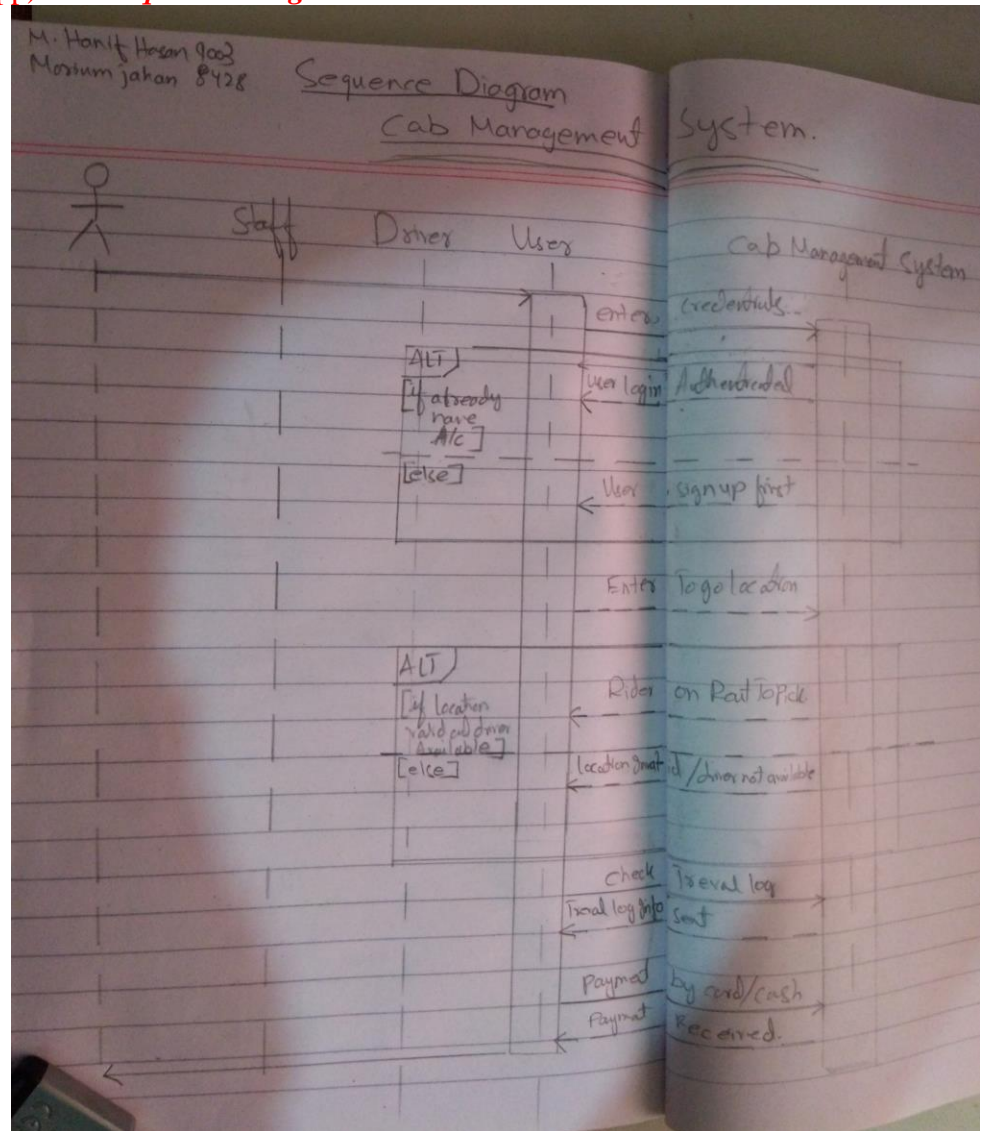 M. Hanif Hasan 9003
Morium jahan 8428
Sequence Diagram
Cab Management System.
Staff Driver User Cab Management System
enter credentials..
ALT
[if already
have
A/c]
User login Authenticated
[else]
User signup first
Enter To go location
ALT
[if location
valid and driver
Available]
Rider on Rout To Pick
[else]
location /driver not available
check Treval log
Traval log Info sent
Payment by card/cash
Paymat Received.